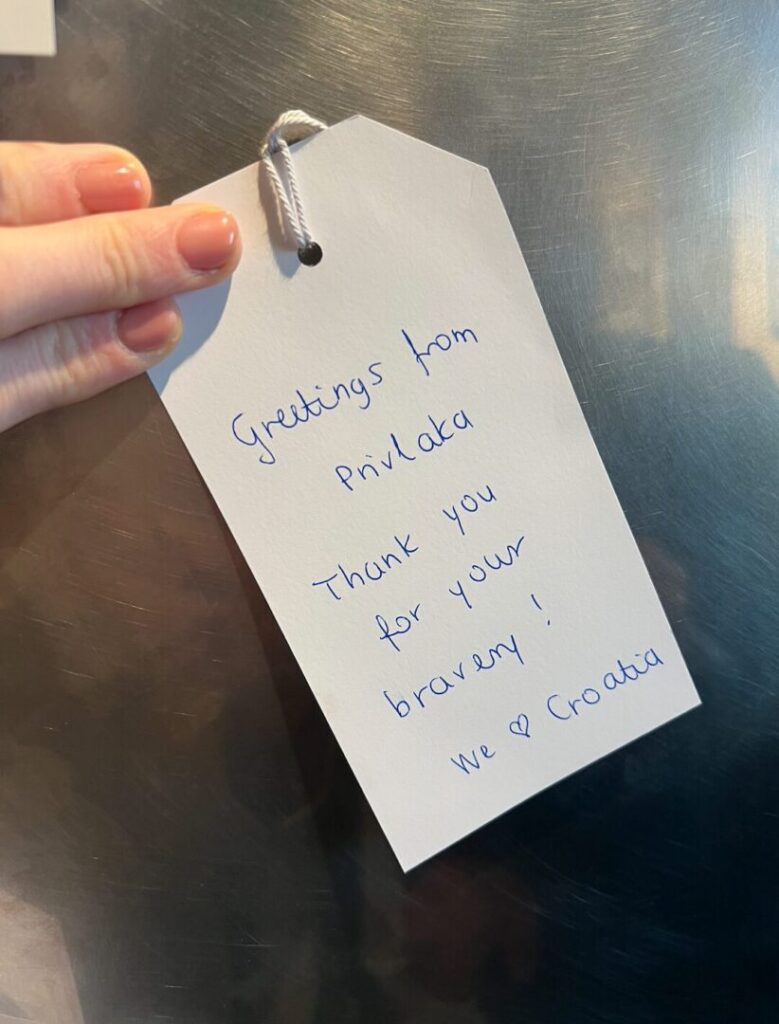 Greetings from
Privlaka
Thank you
for your
bravery!
We ♡ Croatia